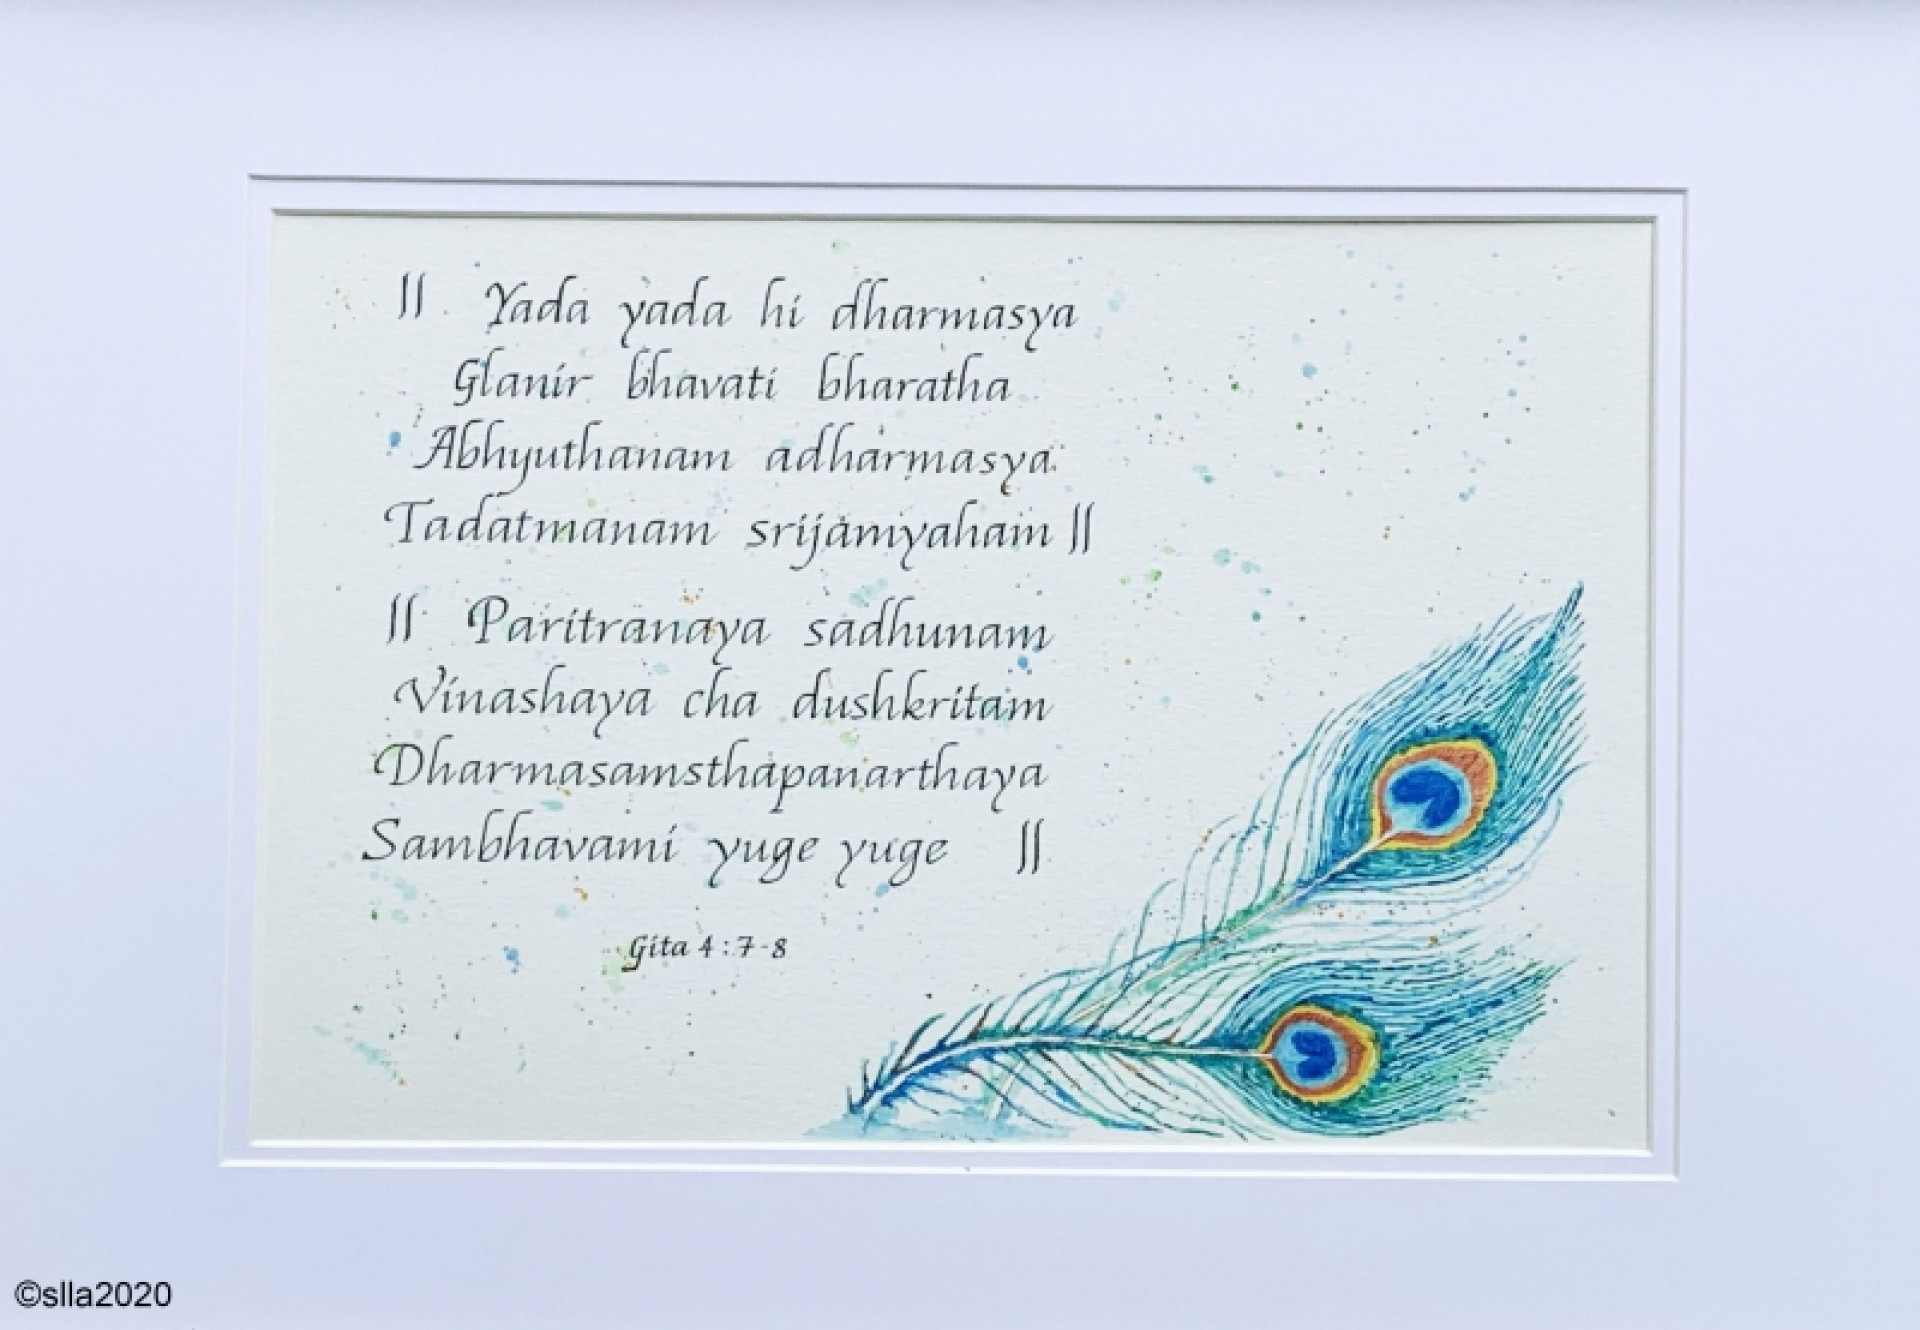 || Yada yada hi dharmasya
Glanir bhavati bharatha
Abhyuthanam adharmasya
Tadatmanam srijamyaham ||
|| Paritranaya sadhunam
Vinashaya cha dushkritam
Dharmasamsthapanarthaya
Sambhavami yuge yuge ||
Gita 4:7-8
©slla2020